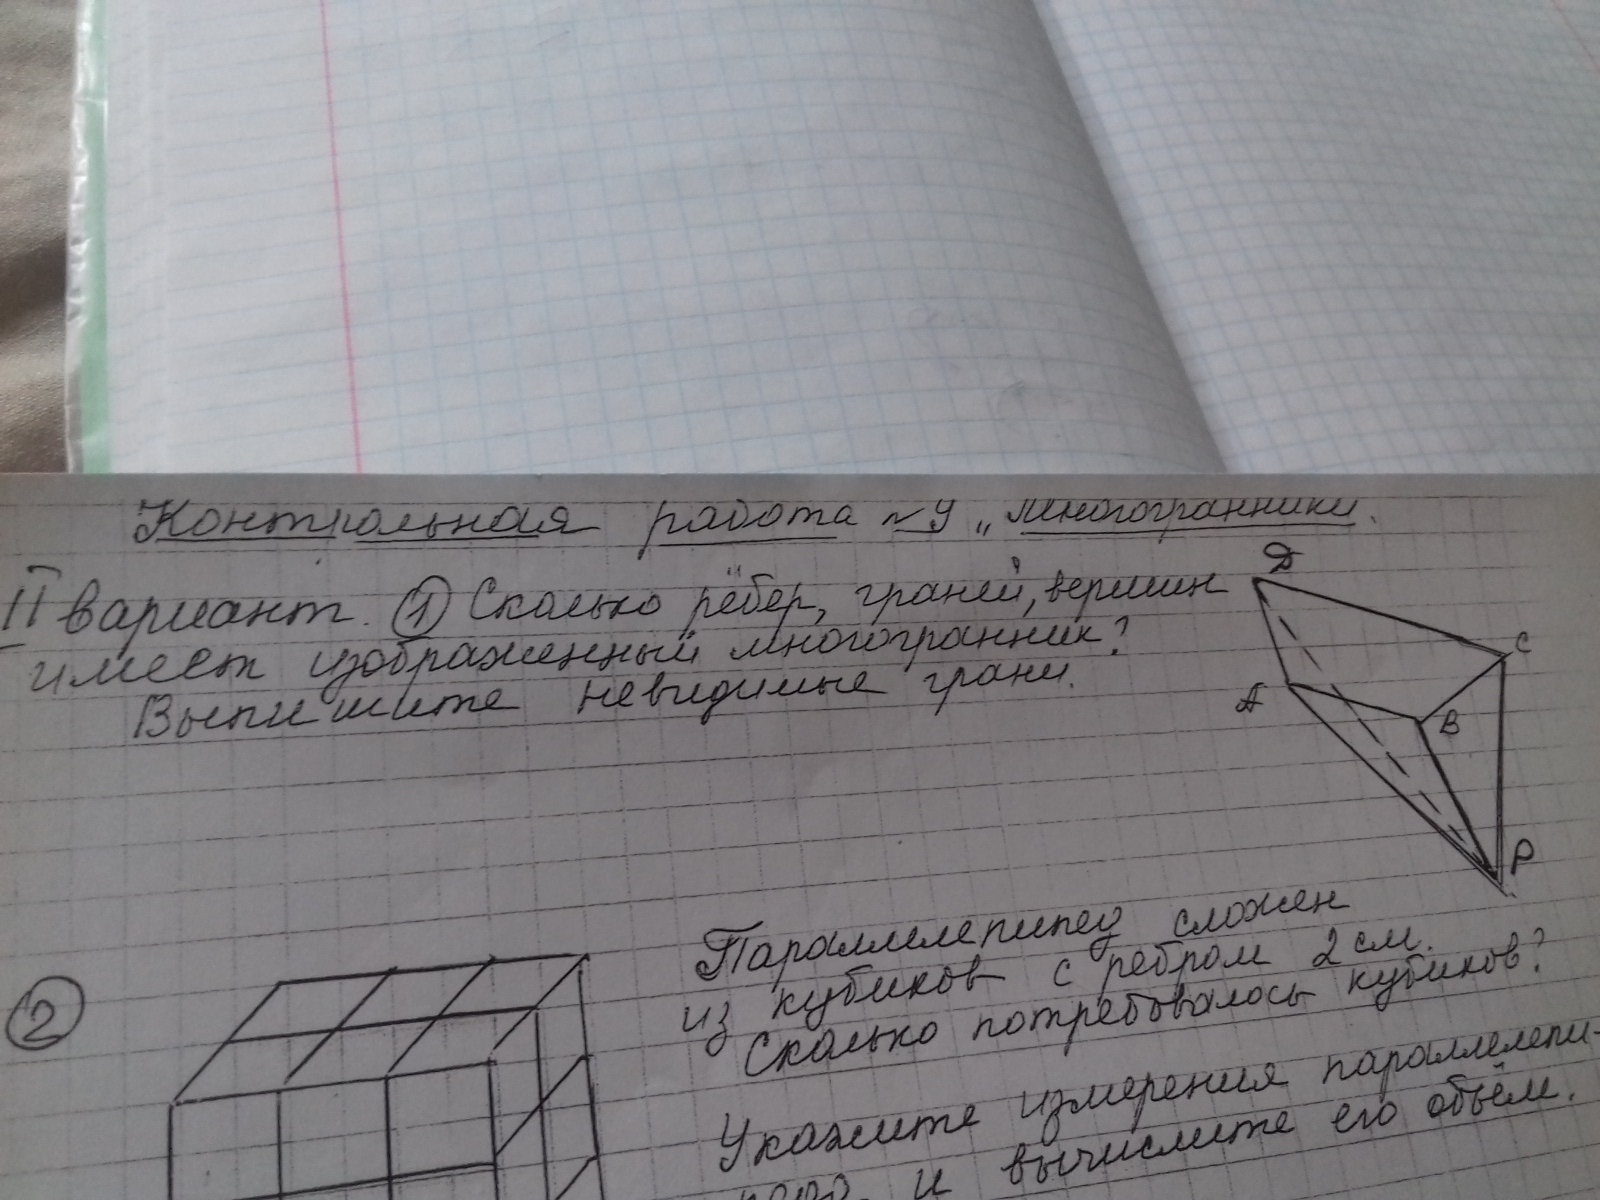 Контрольная работа №9 „Многогранники.
II вариант. ① Сколько рёбер, граней, вершин
имеет изображенный многогранник?
Выпишите невидимые грани.
D
C
A
B
P
②
Параллелепипед сложен
из кубиков с ребром 2 см.
Сколько потребовалось кубиков?
Укажите измерения параллелепи-
и вычислите его объём.